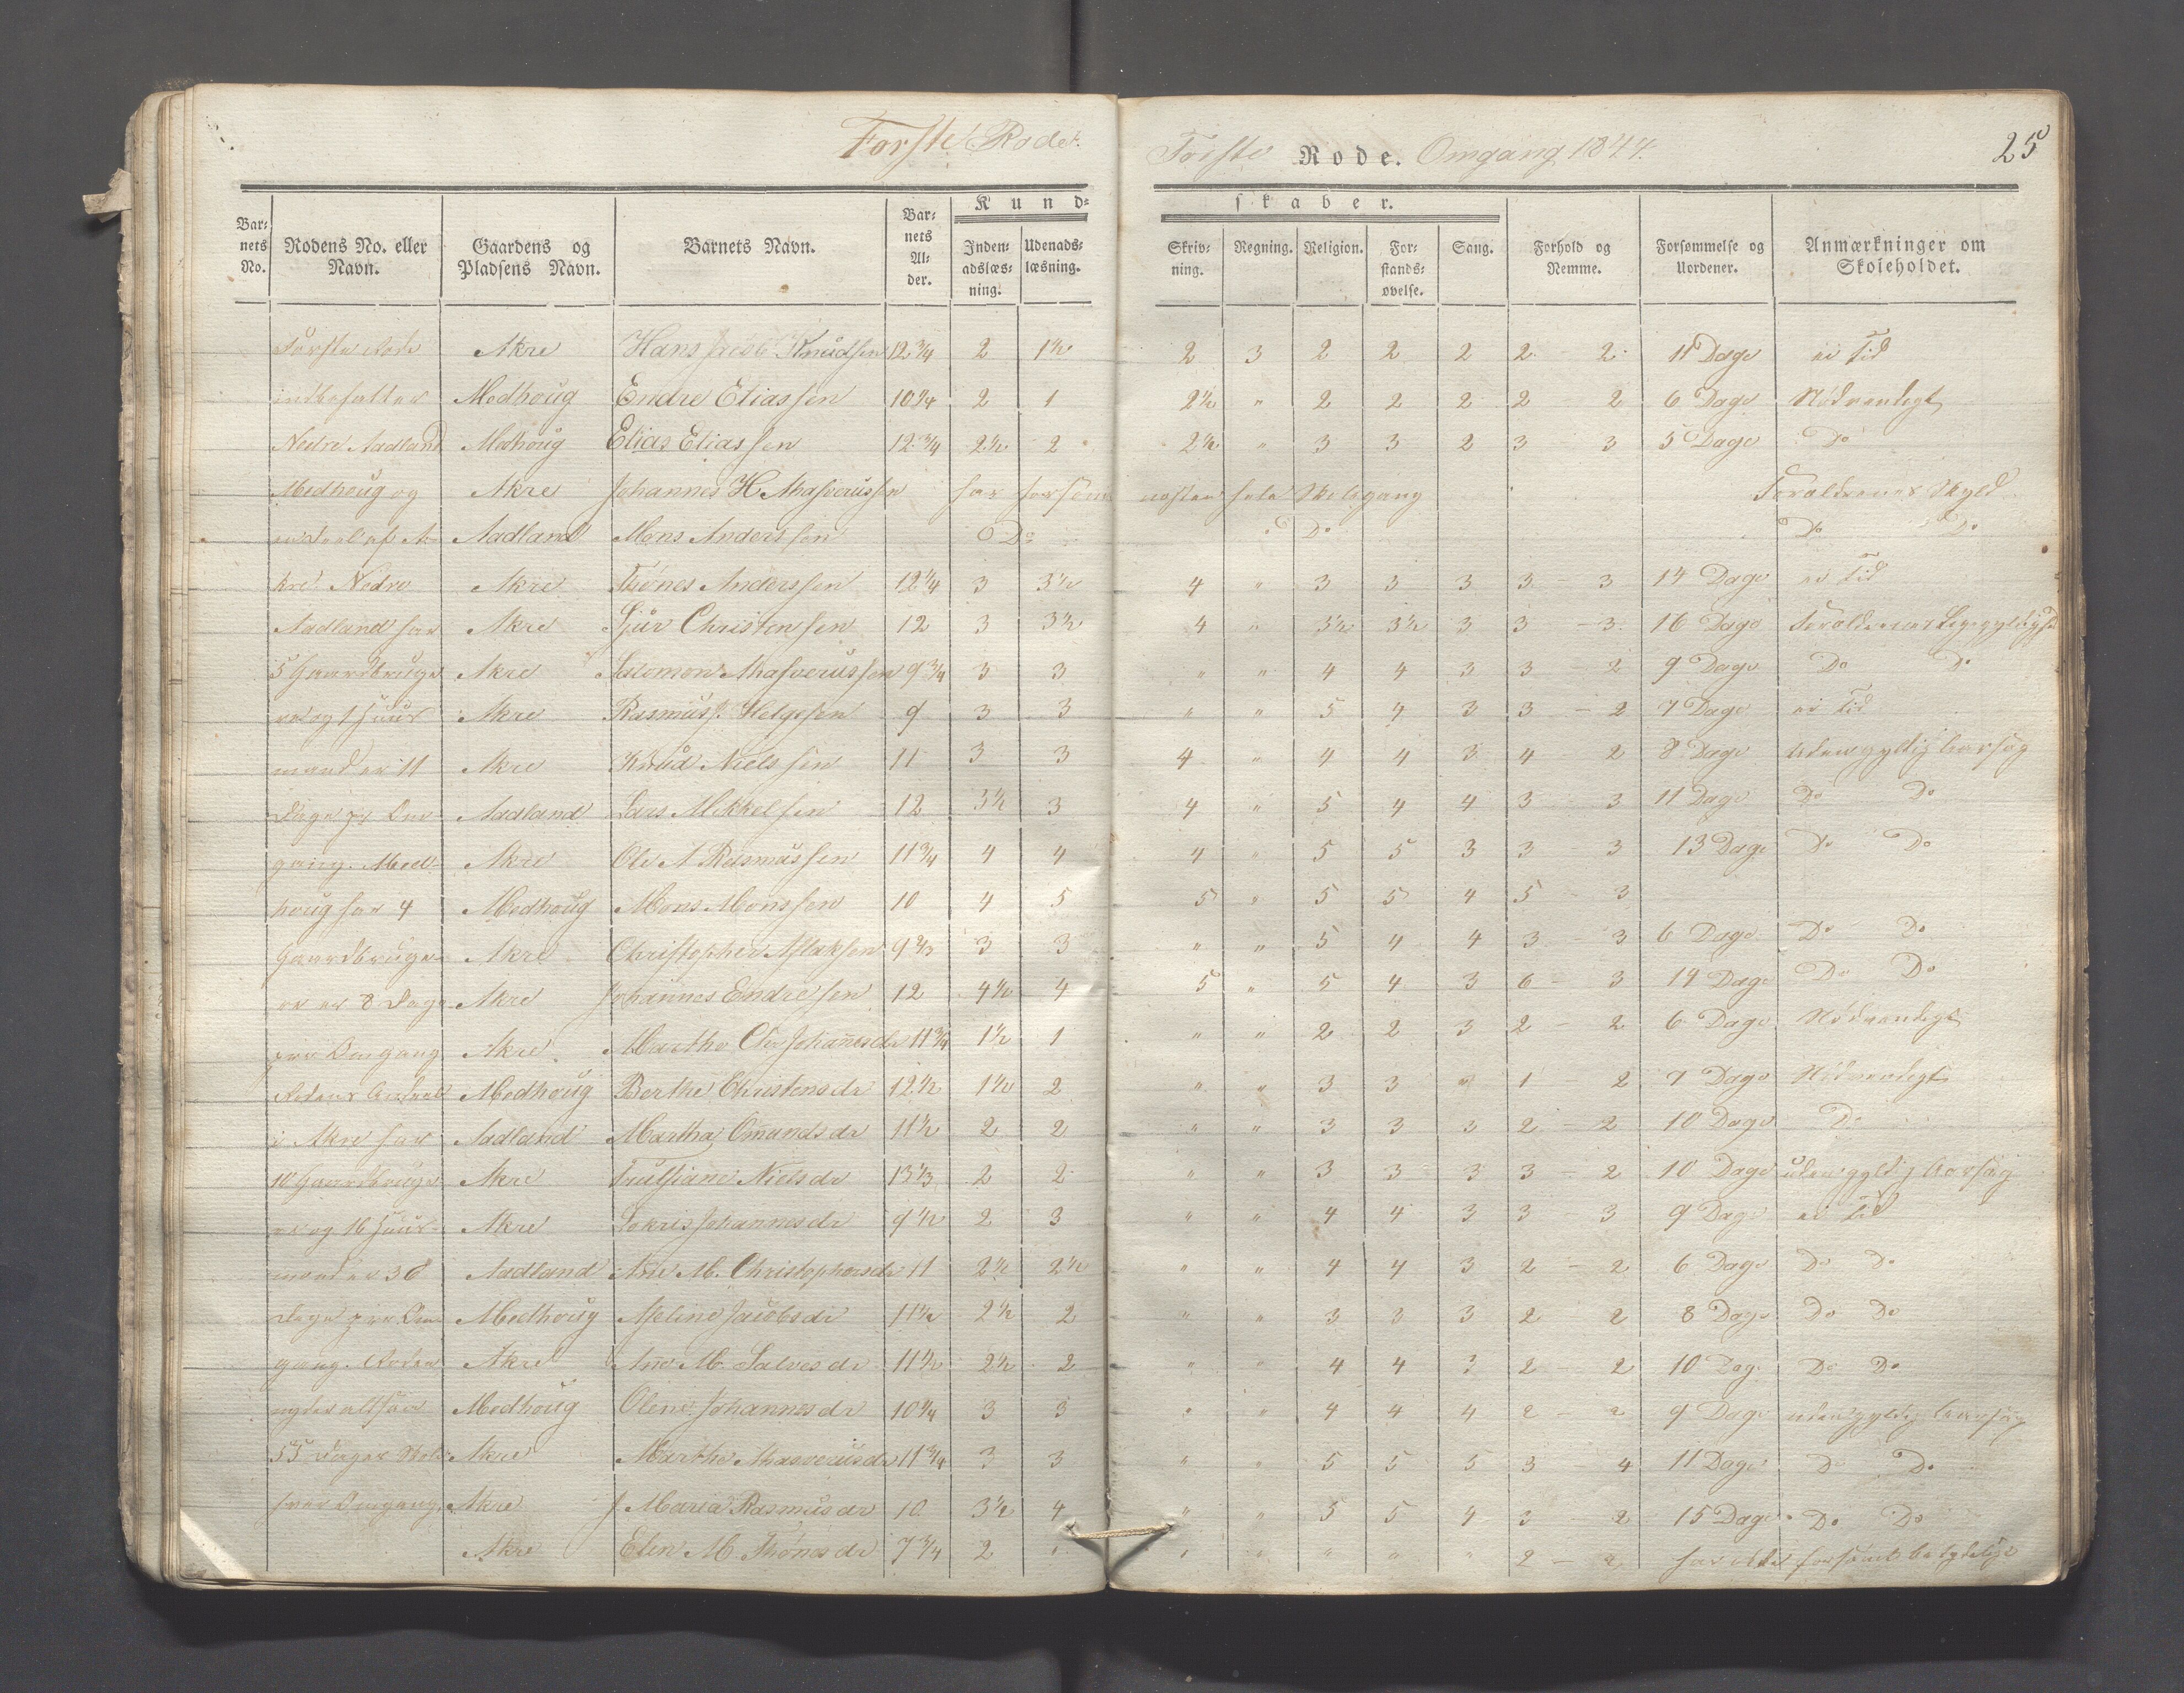 Forste Rode.
Forste Rode. Omgang 1844.
25
Kund-
skaber.
Bar-
nets
No.
Rodens No. eller
Navn.
Gaardens og
Pladsens Navn.
Barnets Navn.
Bar-
nets
Al-
der.
Inden-
adslæs-
ning.
Udenads-
læsning.
Skriv-
ning.
Regning.
Religion.
For-
stands-
øvelse.
Sang.
Forhold og
Nemme.
Forsømmelse og
Uordener.
Anmærkninger om
Skoleholdet.
Første Rode Akre Hans Jacob Knudsen 12 3/4 2 1½ 2 3 2 2 2 2 - 2 11 Dage ei Tid
indbefatter Medhoug Endre Eliassen 10¼ 2 1 2½ " 2 2 2 2 - 2 6 Dage Nødvendigt
Nedre Aadland Medhoug Elias Eliassen 12 3/4 2½ 2 2½ " 3 3 2 3 - 3 5 Dage Do
Medhoug og Akre Johannes H. Ahasverussen har forsømt næsten hele Skolegang Foreldrenes Skyld
Aadland Mons Anderssen Do Do Do Do
kre Nedre Akre Tønes Anderssen 12¼ 3 3½ 4 " 3 3 3 3 - 3 14 Dage ei Tid
Aadland har Akre Sjur Christensen 12 3 3½ 4 " 3½ 3½ 3 3 - 3 16 Dage Foreldrenes Ligegyldighed
5 Gaardbruge Akre Salomon Ahasverussen 9 3/4 3 3 " " 4 4 3 3 - 2 9 Dage Do Do
re og 1 Huus Akre Rasmus J. Helgesen 9 3 3 " " 5 4 3 3 - 2 7 Dage ei Tid
mand er 11 Akre Knud Nielssen 11 3 3 4 " 4 4 3 4 - 2 8 Dage Uden gyldig Aarsag
Dage pr Om- Aadland Lars Mikkelsen 12 3½ 3 4 " 5 4 4 3 - 3 11 Dage Do Do
gang. Med- Akre Ole A Rasmussen 11 3/4 4 4 4 " 5 5 3 3 - 3 13 Dage Do Do
houg har 4 Medhoug Mons Monssen 10 4 5 5 " 5 5 4 5 - 3
Gaardbruge Akre Christopher Aslaksen 9 2/3 3 3 " " 5 4 4 3 - 3 6 Dage Do Do
re er 8 Dage Akre Johannes Endresen 12 4½ 4 5 " 5 4 3 6 - 3 14 Dage Do Do
pr Omgang Akre Marthe Johannesdr 11 3/4 1½ 1 " " 2 2 3 2 - 2 6 Dage Nødvendigt
Medhoug Berthe Christensdr 12½ 1½ 2 " " 3 3 " 1 2 7 Dage Nødvendigt
i Akre har Aadland Martha Omundsdr 11½ 2 2 " " 3 3 3 2 - 2 10 Dage Do
10 Gaardbruge Akre Trulsiane Nielsdr 13 1/3 2 2 " " 3 3 3 3 - 2 10 Dage uden gyldig Aarsag
re og 16 Huus- Akre Johannesdr 9½ 2 3 " " 4 4 3 3 - 3 9 Dage ei Tid
mænd er 36 Aadland Ane M. Christophersdr 11 2½ 2½ " " 4 4 3 2 - 2 6 Dage Do Do
Dage pr Om- Medhoug Aseline Jacobsdr 11½ 2½ 2 " " 3 3 3 2 2 8 Dage Do Do
gang. Roden Akre Ane M. Salvesdr 11½ 2½ 2 " " 4 4 3 2 - 2 10 Dage Do Do
nyder altsaa Medhoug Olene Johannesdr 10¼ 3 3 " " 4 4 4 2 - 2 9 Dage uden gyldig Aarsag
55 Dages Skole Akre Marthe Ahasverusdr 11 3/4 3 3 " " 5 5 5 3 - 4 11 Dage Do Do
hver Omgang. Akre J Maria Rasmusdr 10 3½ 4 " " 5 5 4 3 - 2 15 Dage Do Do
Akre Elen M Thønesdr 7 3/4 2 " " " " " 2 - 2 har ikke forsømt betydelig